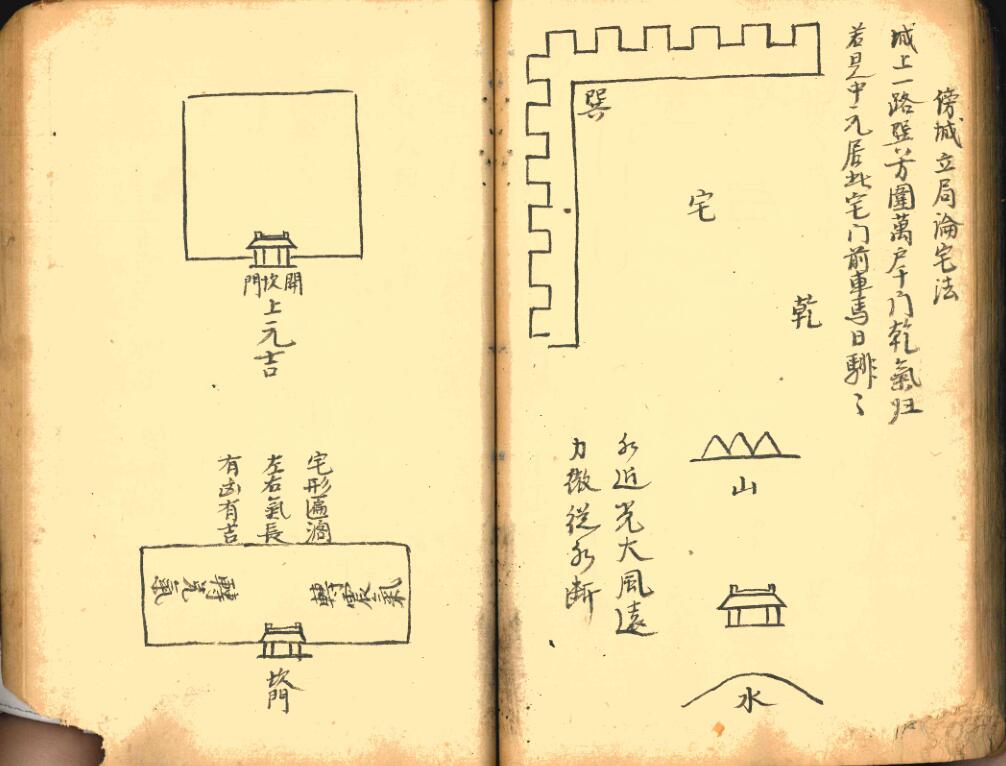 傍城立局論宅法
城上一路巽方圍萬户千门乾氣归
若是中元居此宅门前車馬日騑〻
巽
宅
乾
山
水近光大風遠
力微從水断
水
開坎門
上元吉
宅形匾濶
左右氣長
有凶有吉
轉震氣
轉兑氣
坎門